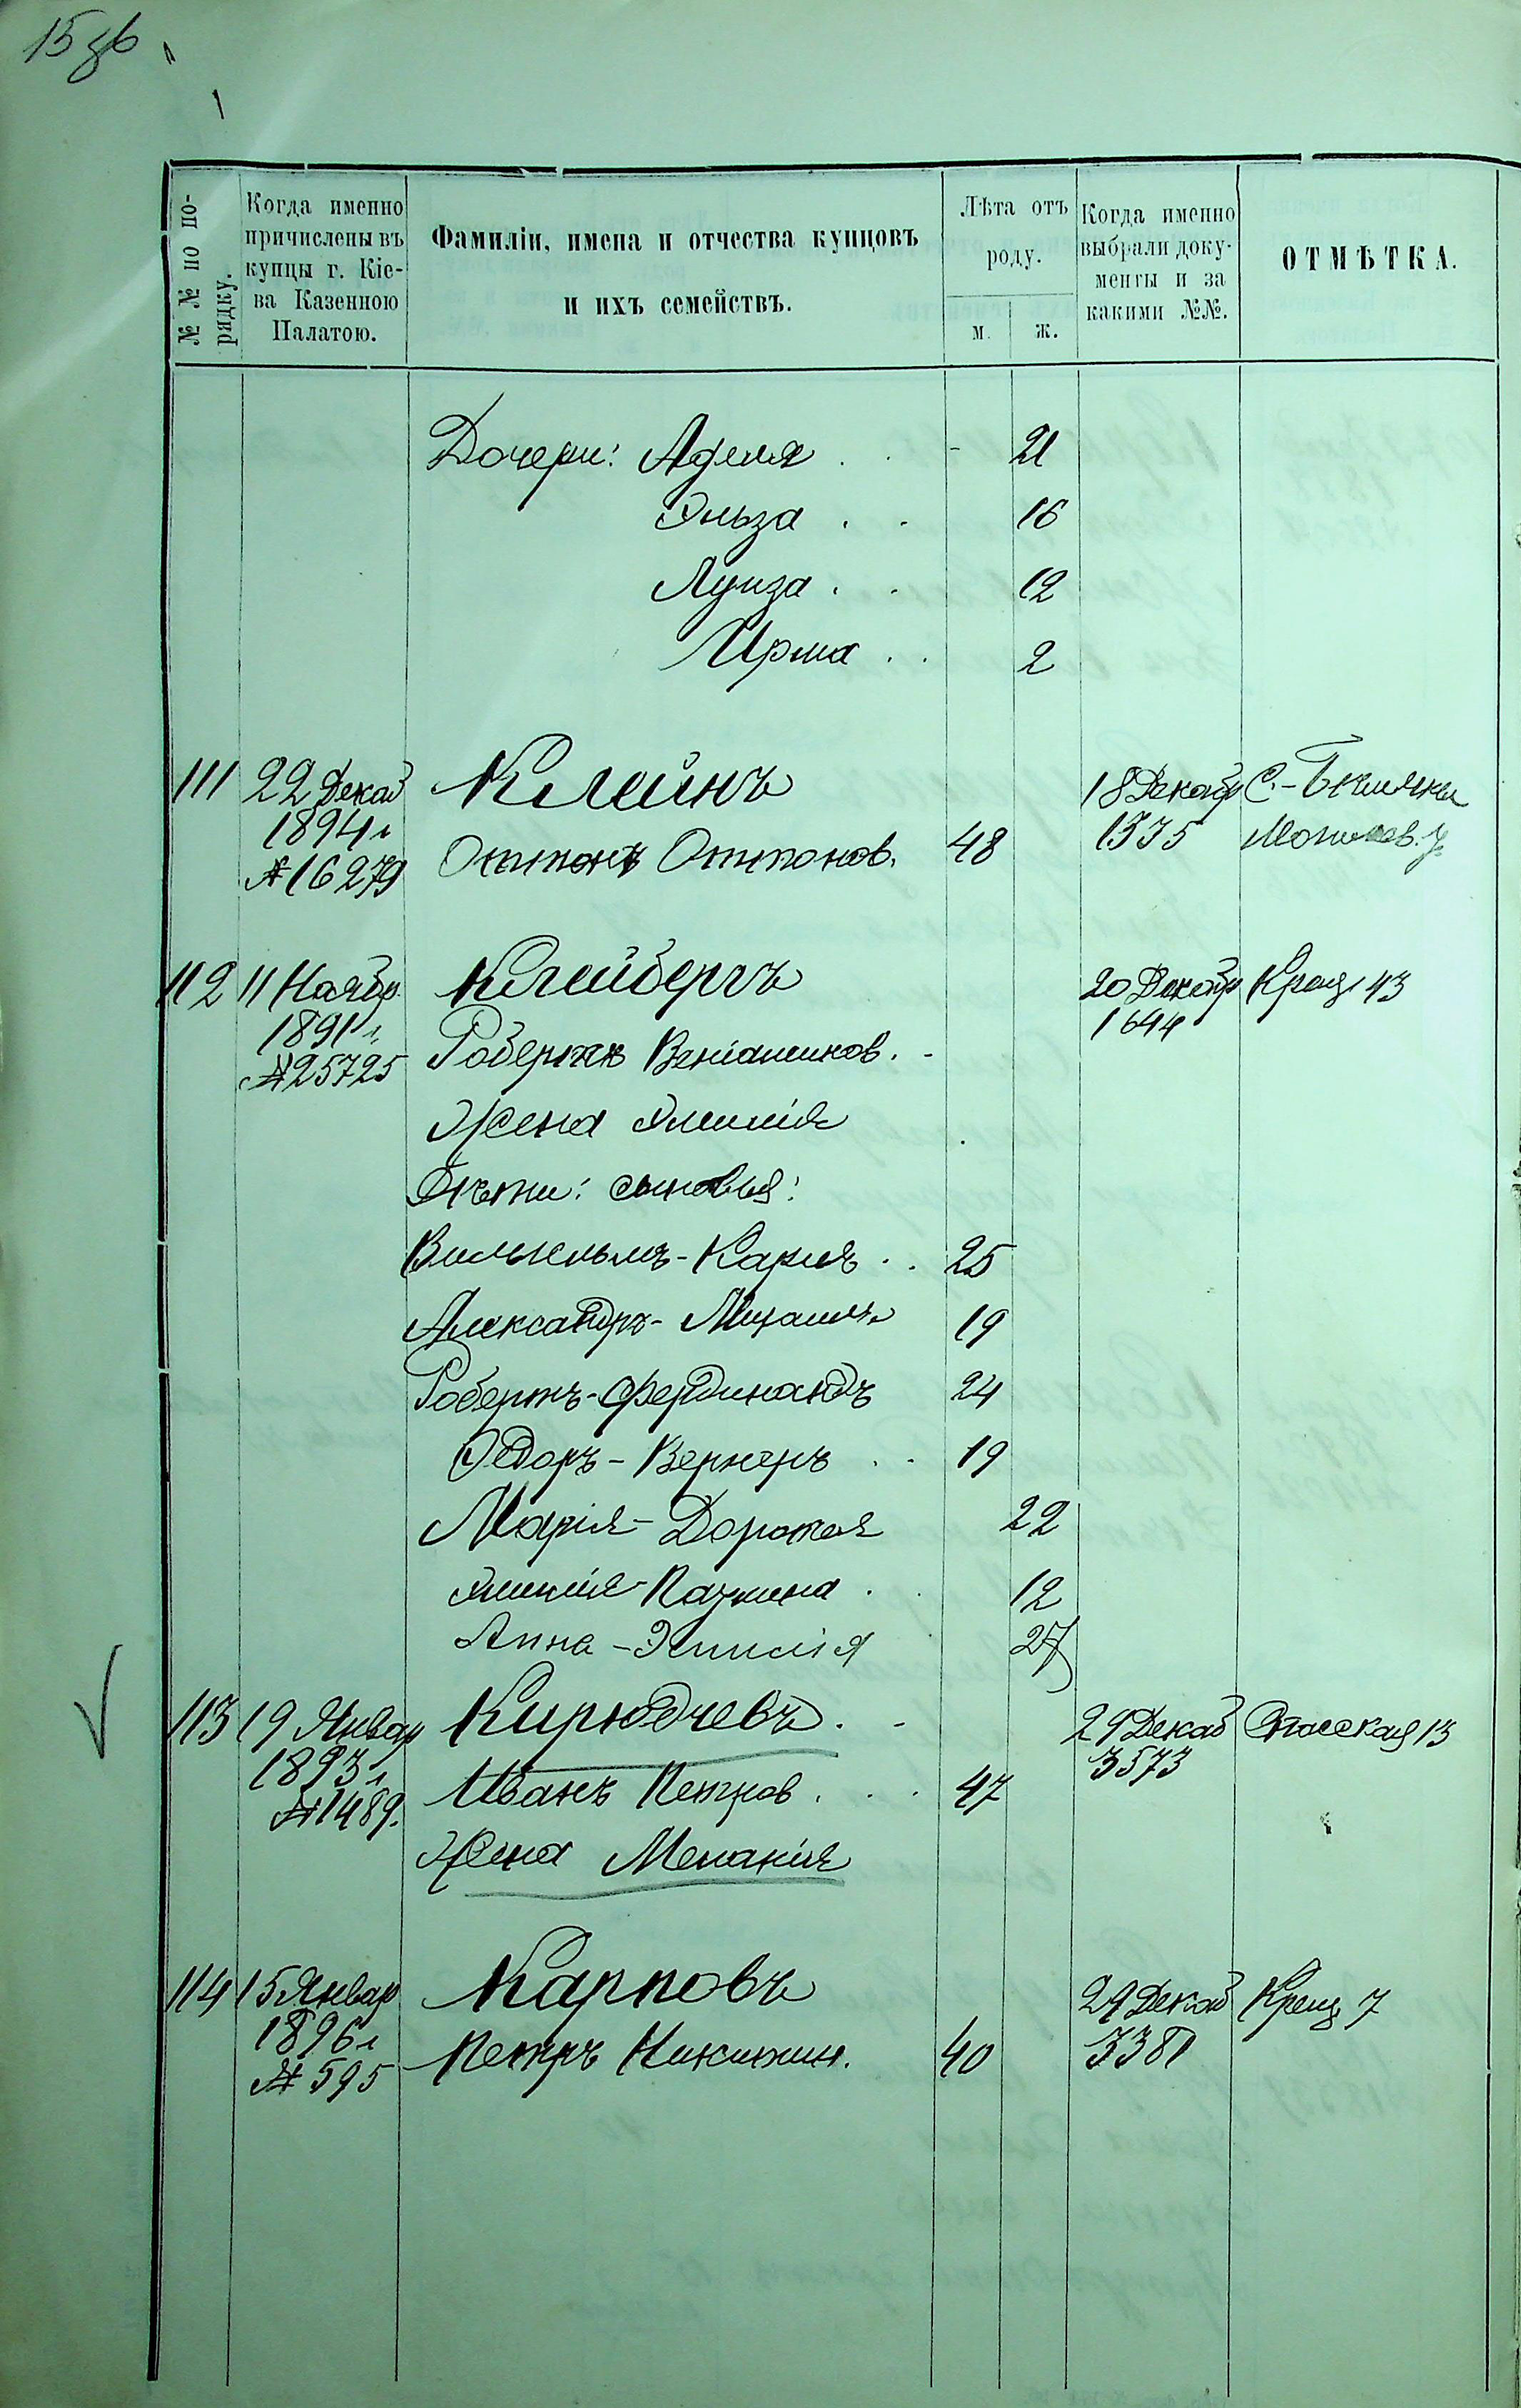 15 зв
№ № по по-
рядку.
Когда именно
причислены въ
купцы г. Кіе-
ва Казенною
Палатою.
Фамиліи, имена и отчества купцовъ
и ихъ семействъ.
Лѣта отъ
роду.
м. ж.
Когда именно
выбрали доку-
менты и за
какими №№.
ОТМѢТКА.
Дочери: Аделя . . - 21
Эльза . . 16
Луиза . . 12
Ирма . . 2
111 22 Декаб Клейнъ 18 Декабр С.-
1894 г Оттонъ Оттонов. 48 1535
№ 16279
112 11 Ноябр. Клейбергъ 20 Декабр Крещ 43
1891 г. Робертъ Веніаминов. - 1644
№ 25725
Жена Эмилія
Дѣти: сыновья:
Вильгельмъ-Карлъ . . 25
Александръ-Михаилъ 19
Робертъ-Фердинандъ 24
Федоръ-Вернеръ . . 19
Марія-Доротея 22
Эмилія-Паулина . . 12
Анна-Эмилія 27
113 19 Январ Кирюдчевъ . - 29 Декаб Спасская 13
1893 г Иванъ Петров . . . 47 3573
№ 1489.
Жена Меланія
114 15 Январ Карповъ 29 Декаб Крещ 7
1896 г Петръ Никитин. 40 3381
№ 595